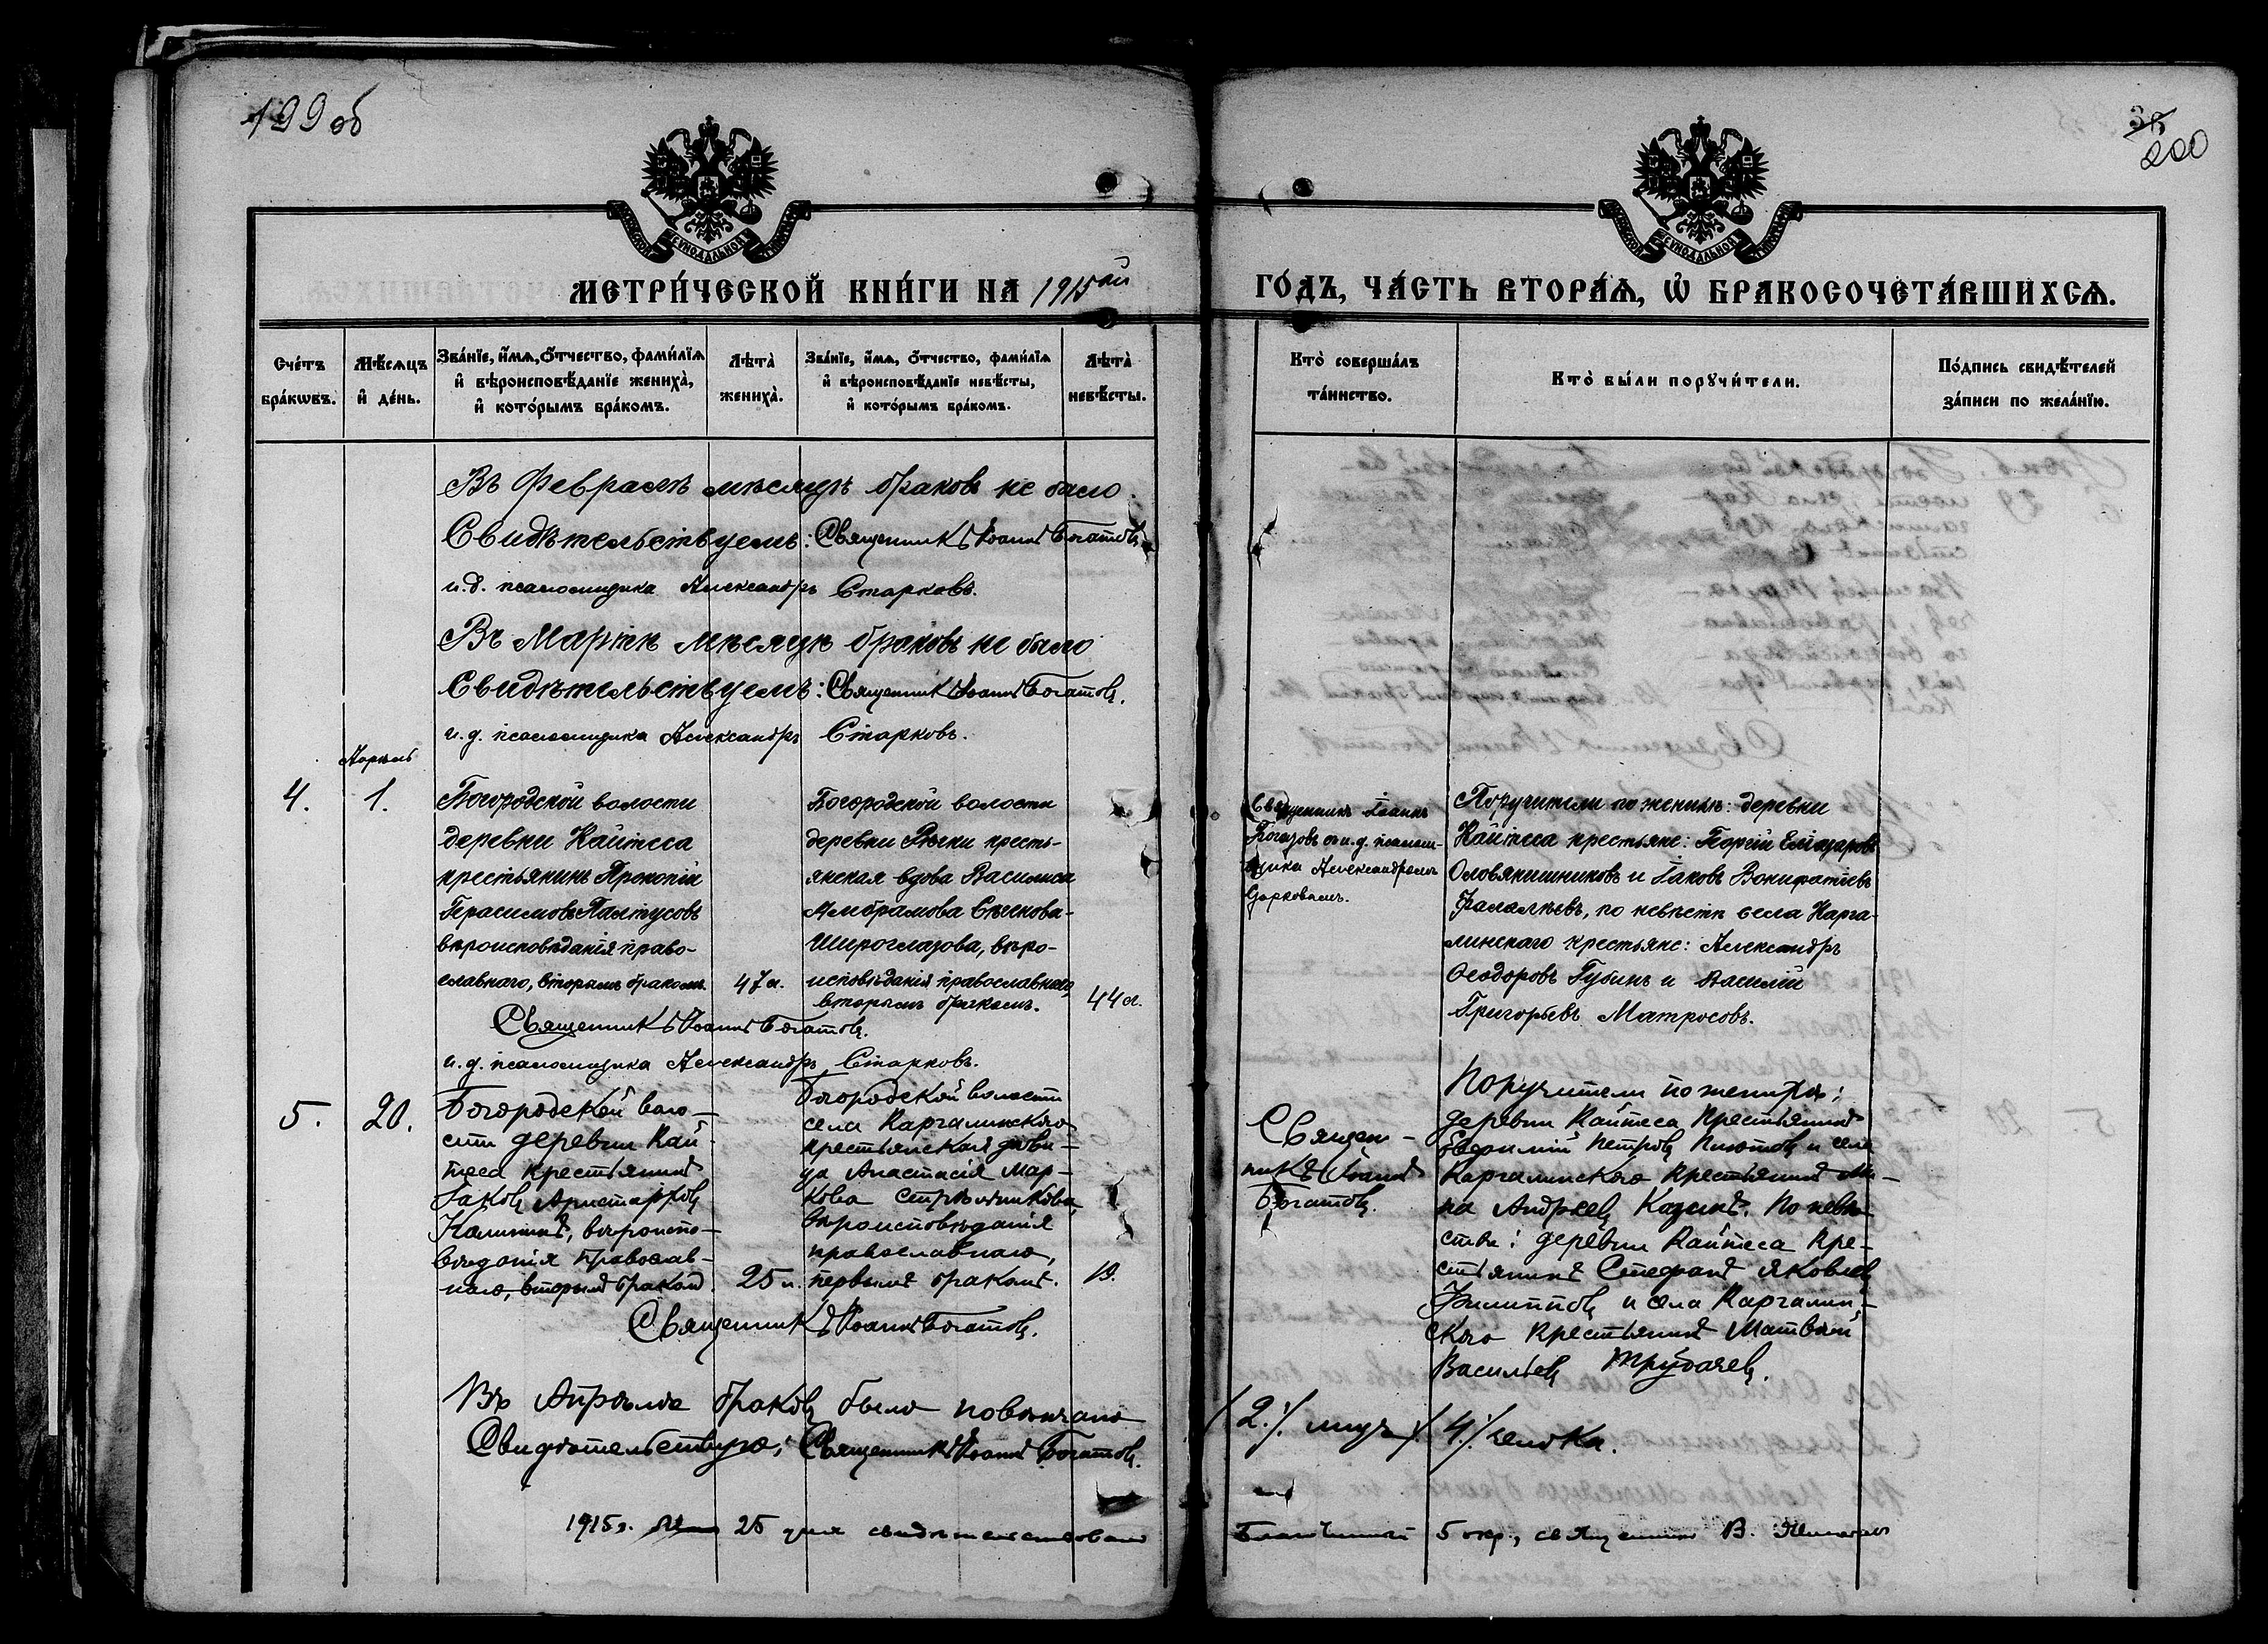 199 об
36
200
МОСКОВСКОЙ СѴНОДАЛЬНОЙ ТИПОГРАФІИ
МОСКОВСКОЙ СѴНОДАЛЬНОЙ ТИПОГРАФІИ
МЕТРИ́ЧЕСКОЙ КНИ́ГИ НА 1915ый
ГО́ДЪ, ЧА́СТЬ ВТОРА́Ѧ, Ѡ҆ БРАКОСОЧЕТА́ВШИХСѦ.
Сче́тъ бра́кѡвъ.
Мѣ́сѧцъ и҆ де́нь.
Зва́нїе, и҆́мѧ, ѻ҆́тчество, фами́лїѧ
и҆ вѣроисповѣ́данїе жениха̀,
и҆ кото́рымъ бра́комъ.
Лѣта̀ жениха̀.
Зва́нїе, и҆́мѧ, ѻ҆́тчество, фами́лїѧ
и҆ вѣроисповѣ́данїе невѣ́сты,
и҆ кото́рымъ бра́комъ.
Лѣта̀ невѣ́сты.
Кто̀ соверша́лъ
та́инство.
Кто̀ бы́ли порꙋчи́тели.
По́дпись свидѣ́телей
за́писи по жела́нїю.
Въ Февралѣ мѣсяцѣ браковъ не было.
Свидѣтельствуемъ: Священникъ Іоаннъ Богатовъ
и.д. псаломщика Александръ Старковъ.
Въ Мартѣ мѣсяцѣ браковъ не было
Свидѣтельствуемъ: Священникъ Іоаннъ Богатовъ.
и.д. псаломщика Александръ Старковъ.
Апрѣль
4. 1.
Богородской волости
деревни Кайтеса
крестьянинъ Прокопій
Герасимовъ Палтусовъ
вѣроисповѣданія право-
славнаго, вторымъ бракомъ.
47 л.
Богородской волости
деревни Рѣчки кресть-
янская вдова Василиса
Амбрамова
Широглазова, вѣро-
исповѣданія православнаго,
вторымъ бракомъ.
44 л.
Священникъ Іоаннъ
Богатовъ съ и.д. псалом-
щика Александромъ
Старковымъ.
Поручители по женихѣ: деревни
Кайтеса крестьяне: Георгій Еліазаровъ
Оловянишниковъ и Іаковъ Вонифатіевъ
Фалалѣевъ, по невѣстѣ села Карга-
линскаго крестьяне: Александръ
Ѳеодоровъ Губинъ и Василій
Григорьевъ Матросовъ.
Священникъ Іоаннъ Богатовъ.
и.д. псаломщика Александръ Старковъ.
5. 20.
Богородской воло-
сти деревни Кай-
теса крестьянинъ
Іаковъ Аристарховъ
Калининъ, вѣроиспо-
вѣданія православ-
наго, вторымъ бракомъ.
25 л.
Богородской волости
села Каргалинскаго
крестьянская дѣви-
ца Анастасія Мар-
кова Стрѣльникова,
вѣроисповѣданія
православнаго,
первымъ бракомъ.
19.
Священ-
никъ Іоаннъ
Богатовъ.
Поручители по женихѣ:
деревни Кайтеса крестьянинъ
Евфимій Петровъ и села
Каргалинскаго крестьянинъ Ми-
на Андреевъ Казинъ. По невѣ-
стѣ: деревни Кайтеса кре-
стьянинъ Стефанъ Яковлевъ
Филипповъ и села Каргалин-
скаго крестьянинъ Матвѣй
Васильевъ Трубачевъ.
Священникъ Іоаннъ Богатовъ.
Въ Апрѣлѣ браковъ было повѣнчано /2./ лицъ /4./ человѣка.
Свидѣтельствую: Священникъ Іоаннъ Богатовъ.
1915 г. 25 дня свидѣтельствовалъ Благочинный 5 окр., священникъ В.